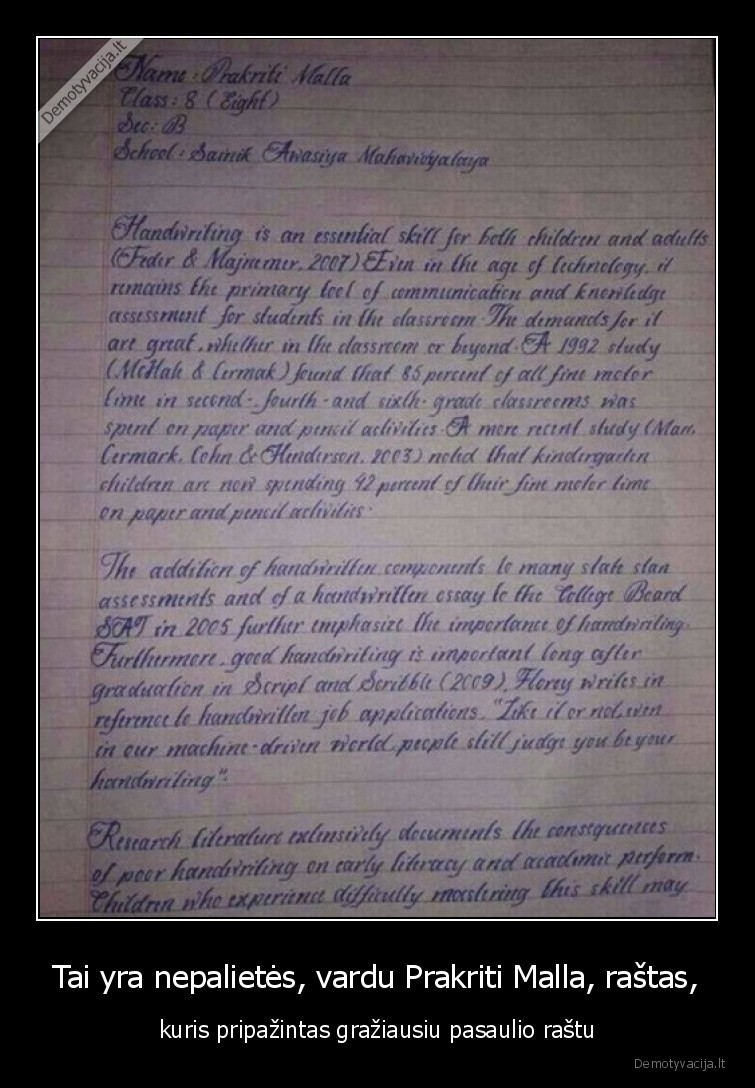 Demotyvacija.lt
Name : Prakriti Malla
Class : 8 ( Eight )
Sec : B
School : Sainik Awasiya Mahavidyalaya
Handwriting is an essential skill for both children and adults
(Feder & Majnemer, 2007) Even in the age of technology, it
remains the primary tool of communication and knowledge
assessment for students in the classroom. The demands for it
are great, whether in the classroom or beyond. A 1992 study
(McHale & Cermak) found that 85 percent of all fine motor
time in second-, fourth-and sixth-grade classrooms was
spent on paper and pencil activities. A more recent study (Marr,
Cermark, Cohn & Henderson, 2003) noted that kindergarten
children are now spending 42 percent of their fine motor time
on paper and pencil activities.
The addition of handwritten components to many state stan
assessments and of a handwritten essay to the College Board
SAT in 2005 further emphasize the importance of handwriting.
Furthermore, good handwriting is important long after
graduation in Script and Scribble (2009), Florey writes in
reference to handwritten job applications, "Like it or not, even
in our machine-driven world, people still judge you be your
handwriting".
Research literature extensively documents the consequences
of poor handwriting on early literacy and academic perform.
Children who experience difficulty mastering this skill may
Tai yra nepalietės, vardu Prakriti Malla, raštas,
kuris pripažintas gražiausiu pasaulio raštu
Demotyvacija.lt